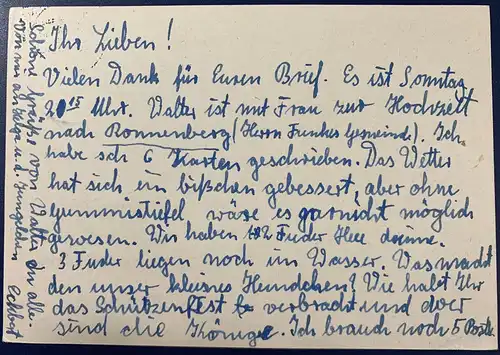 Ihr Lieben!
Vielen Dank für Euren Brief. Es ist Sonntag
20 15 Uhr. Walter ist mit Frau zur Hochzeit
nach Ronnenberg (Herrn Funkes Gemeinde). Ich
habe sch 6 Karten geschrieben. Das Wetter
hat sich ein bißchen gebessert, aber ohne
Gummistiefel wäre es garnicht möglich
gewesen. Wir haben 12 Fuder Heu drinne.
3 Fuder liegen noch im Wasser. Was macht
den unser kleines Hundchen? Wie habt Ihr
das Schützenfest verbracht und wer
sind die Könige. Ich brauch noch 5 Postk
Schöne Grüße von Walter an alle.
Von mir an Helga und
Eckbert